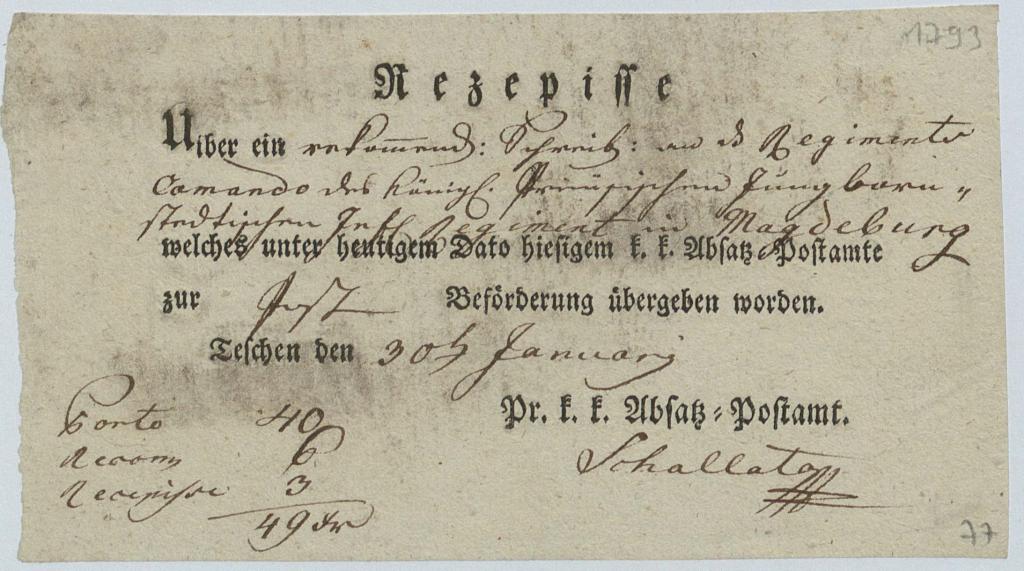 1793
Rezepisse
Uiber ein rekommend: Schreib: an d Regiments
Comando des Königl. Preüsischen Jung born-
stedtischen Inf. Regiment in Magdeburg
welches unter heutigem Dato hiesigem k. k. Absatz-Postamte
zur Post Beförderung übergeben worden.
Teschen den 30t Januarj
Pr. k. k. Absatz-Postamt.
Porto 40
Recom 6
Schallata
Recepisse 3
49 xr
77